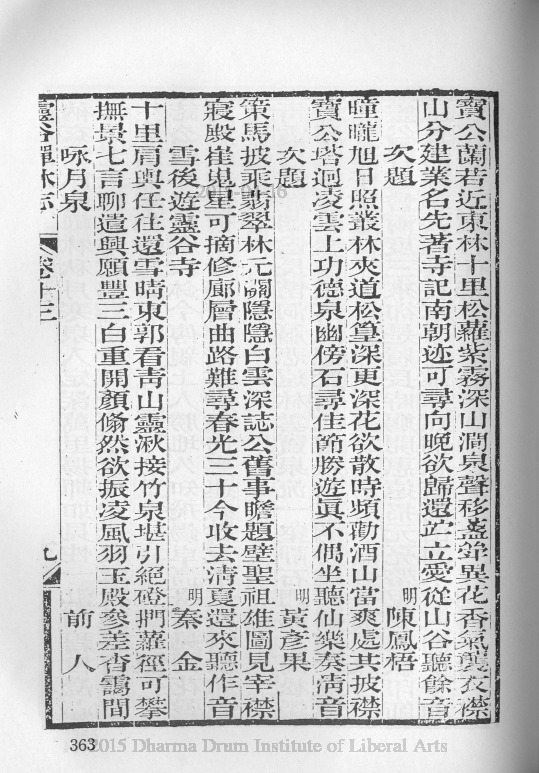 寶公蘭若近東林十里松蘿紫霧深山澗泉聲移盞斝異花香氣襲衣襟
山分建業名先著寺記南朝迹可尋向晚欲歸還竚立愛從山谷聽餘音
次題 明 陳鳳梧
曈曨旭日照叢林夾道松篁深更深花欲散時頻勸酒山當爽處共披襟
寶公塔迥凌雲上功德泉幽傍石尋佳節勝遊眞不偶坐聽仙樂奏淸音
次題 明 黃彥果
策馬披乘翡翠林元關隱隱白雲深誌公舊事瞻題壁聖祖雄圖見宰襟
寢殿崔嵬星可摘修廊層曲路難尋春光三十今收去淸夏還來聽作音
雪後遊靈谷寺 明 秦金
十里肩輿任往還雪晴東郭看靑山靈湫接竹泉堪引絕磴捫蘿徑可攀
撫景七言聊遣興願豐三白重開顏翛然欲振凌風羽玉殿參差杳靄間
咏月泉 前人
靈谷禪林志 卷十三 九
363
©2015 Dharma Drum Institute of Liberal Arts